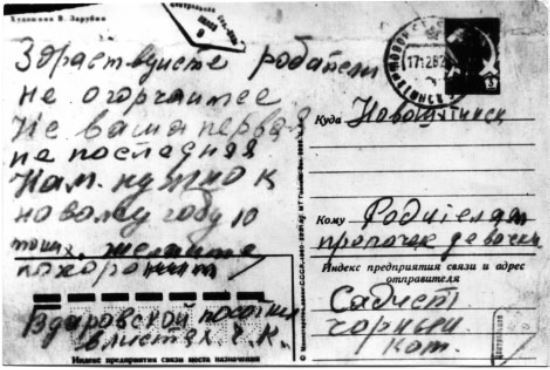 Художник В. Зарубин
Здраствуйте родатели
не огорчайтес
Не ваша первая
не последняя
Нам. нужно к
новому году 10
желаите
похоронит
Вдаровской посатки
в листях. Ч. К.
Индекс предприятия связи места назначения
17 12 82
Куда Новошахтинск
Кому Родителям
пропачек девочки
Индекс предприятия связи и адрес
отправителя
Садист
чорный
кот.